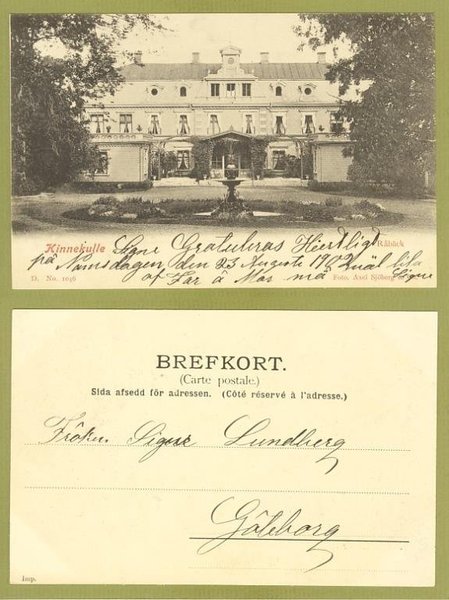 Kinnekulle
Råbäck
Signe Gratuleras Hiertligt
på Namsdagen, den 23 Augusti 1902
af Far å Mor
lila Signe
D. No. 1036
Foto. Axel Sjöberg
BREFKORT.
(Carte postale.)
Sida afsedd för adressen. (Côté réservé à l'adresse.)
Fröken Signe Lundberg
Göteborg
Imp.